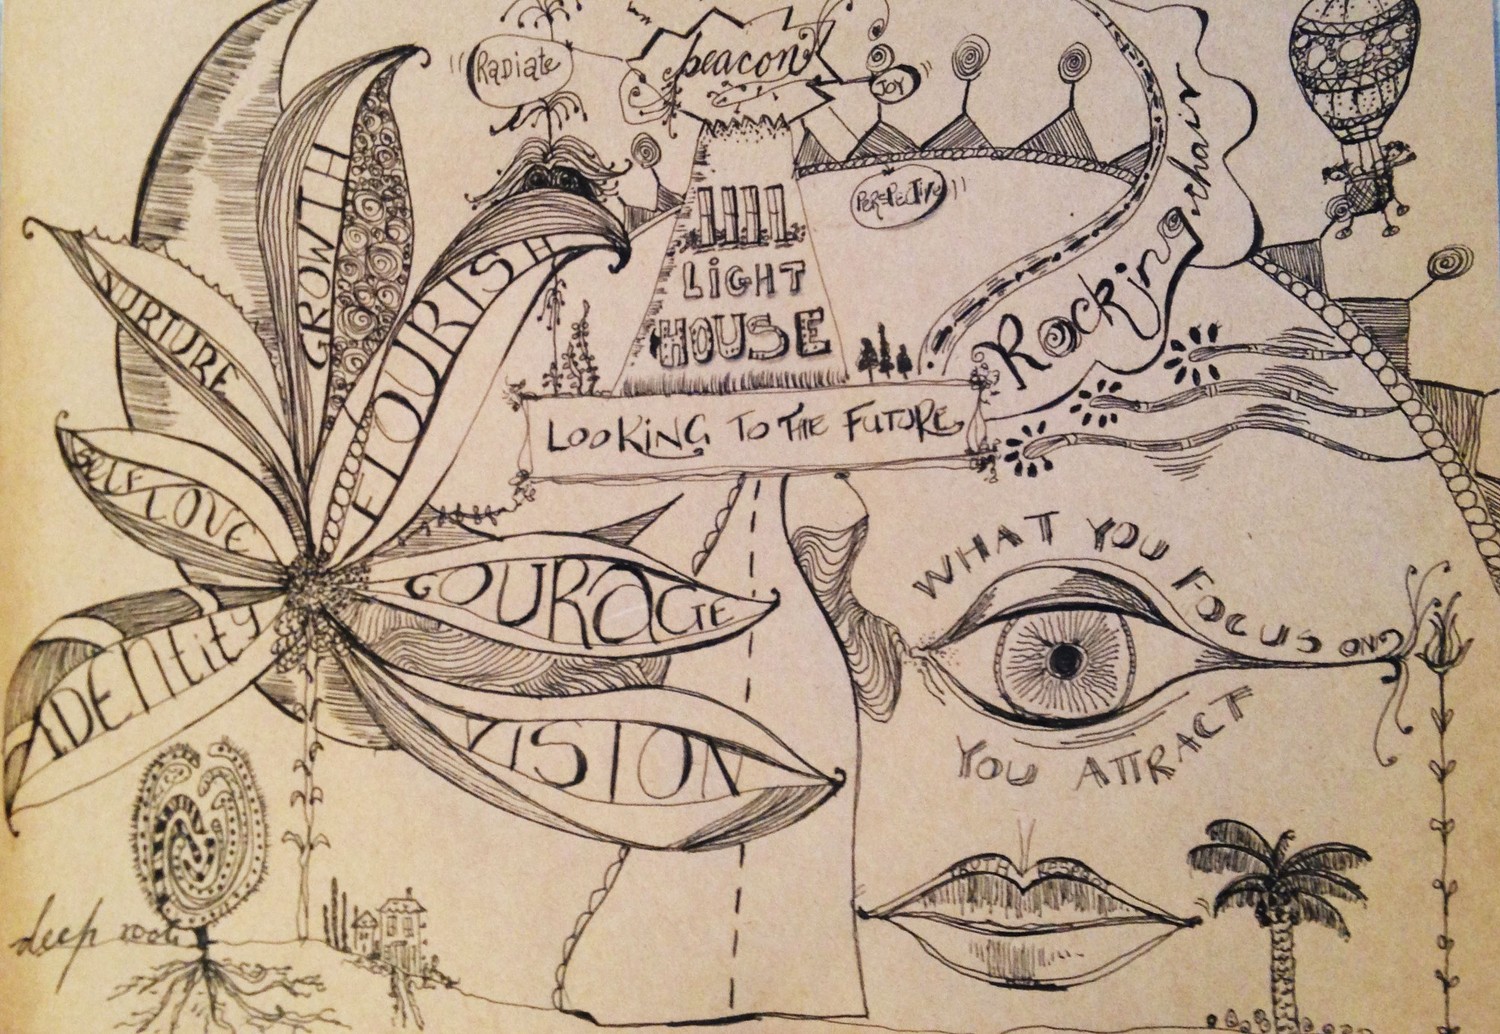 Radiate
beacon
JOY
PERSPECTIVE
Rocking chair
GROWTH
FLOURISH
NURTURE
SELF LOVE
LIGHT
HOUSE
LOOKING TO THE FUTURE
COURAGE
IDENTITY
VISION
WHAT YOU FOCUS ON
YOU ATTRACT
TRUTH
deep roots